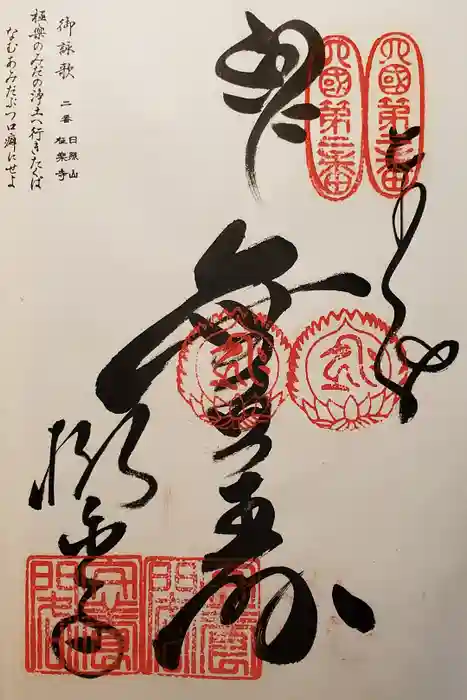 四國第二番
四國第二番
奉
無量寿
極楽寺
御詠歌 二番 日照山 極楽寺
極楽のみだの浄土へ行きたくば
なむあみだぶつ口癖にせよ